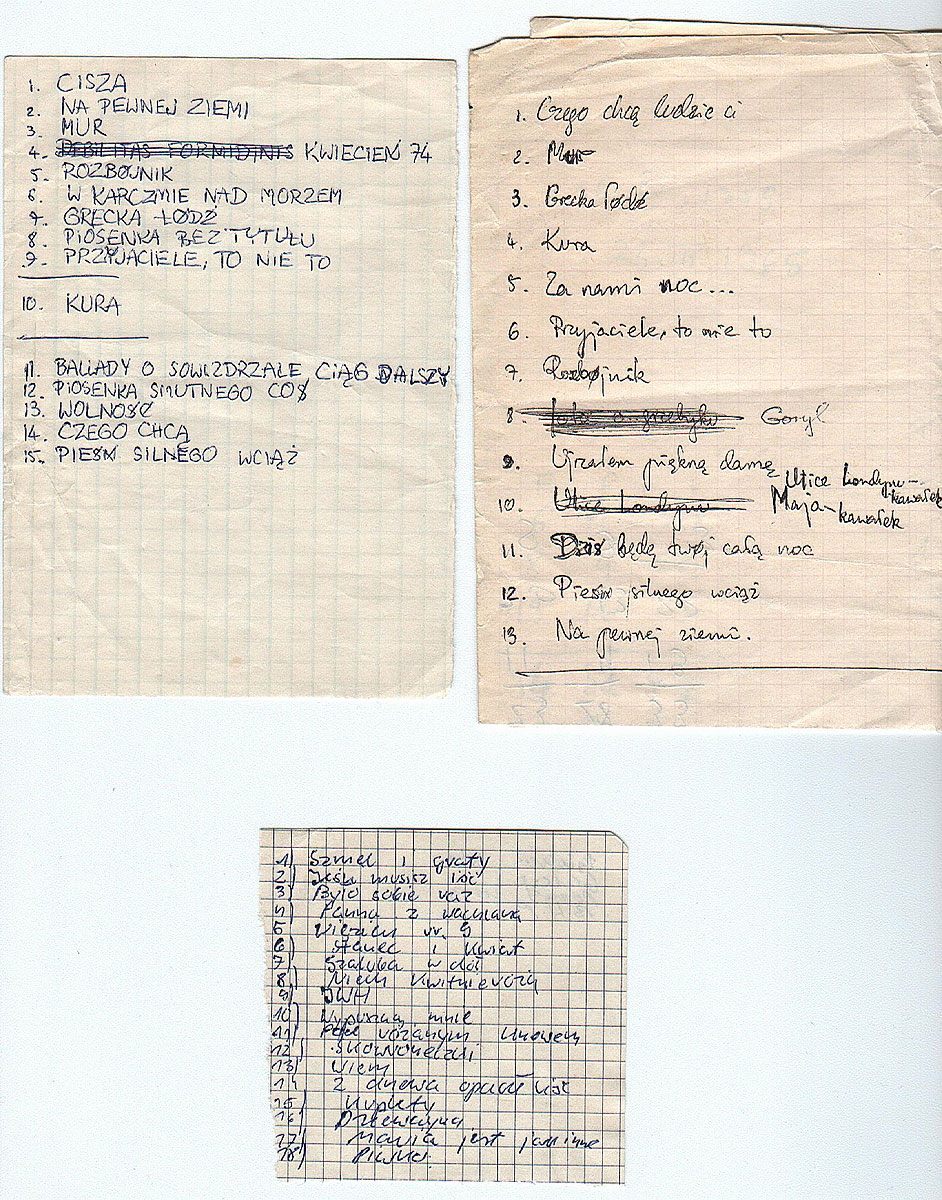 1. CISZA
2. NA PEWNEJ ZIEMI
3. MUR
4. DEBILITAS FORMIDINIS KWIECIEŃ 74
5. ROZBÓJNIK
6. W KARCZMIE NAD MORZEM
7. GRECKA ŁÓDŹ
8. PIOSENKA BEZ TYTUŁU
9. PRZYJACIELE, TO NIE TO
10. KURA
11. BALLADY O SOWIZDRZALE CIĄG DALSZY
12. PIOSENKA SMUTNEGO COŚ
13. WOLNOŚĆ
14. CZEGO CHCĄ
15. PIEŚŃ SILNEGO WCIĄŻ
1. Czego chcą ludzie ci
2. Mur
3. Grecka łódź
4. Kura
5. Za nami noc...
6. Przyjaciele, to nie to
7. Rozbójnik
8. Goryl
9. Ujrzałem piękną damę
10. Ulice Londynu Ulice Londynu - kawałek
Maja - kawałek
11. Dziś będę twój całą noc
12. Pieśń silnego wciąż
13. Na pewnej ziemi.
1) Szmel i graty
2) Jeśli musisz iść
3) Było sobie raz
4) Panna z wachlarza
5 nr. 9
6) i kwiat
7) w dół
8) Niech
9) JWH
10) Wypuszczą mnie
11) różanym
12) Skowroneczki
13) Wiem
14 Z drzewa opadł liść
15 Kuplety
16) Dziewczyna
17) Maria jest jak inne
18) Piwko.